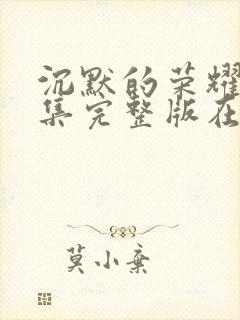 沉默的荣耀
集完整版在
莫小弃